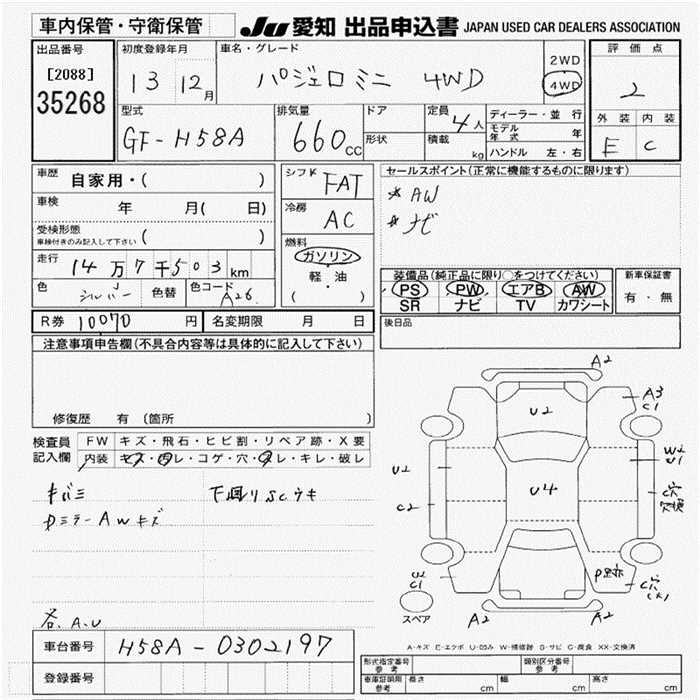 車内保管・守衛保管
JU 愛知 出品申込書 JAPAN USED CAR DEALERS ASSOCIATION
出品番号
[2088]
35268
初度登録年月
13 12月
車名・グレード
パジェロミニ 4WD
2WD
4WD
評価点
2
外装 内装
E C
型式
GF-H58A
排気量
660cc
ドア
形状
定員
4人
積載
kg
ディーラー・並行
モデル年式 年
ハンドル 左・右
車歴
自家用・( )
車検
年 月( 日)
受検形態
車検付きのみ記入して下さい ( )
走行
14万7千503km
色
シルバー
色替
色コード
A26
シフト
FAT
冷房
AC
燃料
ガソリン
軽・油
( )
セールスポイント(正常に機能するものに限ります)
* AW
* ナビ
装備品(純正品に限り○をつけてください)
PS PW エアB AW
SR ナビ TV カワシート
新車保証書
有・無
R券 10070円
名変期限 月 日
後日品
注意事項申告欄(不具合内容等は具体的に記入して下さい)
修復歴 有 (箇所 )
検査員記入欄
FW キズ・飛石・ヒビ割・リペア跡・X要
内装 キズ・凹レ・コゲ・穴・ヌレ・キレ・破レ
キバミ 下回りSCウキ
ミラーAWキズ
各A.U
A2
U2
A3
C1
U2
W2
U1
U4
C2
C穴
欠損
U2
C1
P跡
C穴
(大)
スペア
A2
A2
A-キズ E-エクボ U-凹み W-補修跡 S-サビ C-腐食 XX-交換済
車台番号 H58A-0302197
登録番号
形式指定番号
参考
類別区分番号
参考
車庫証明用
参考
長さ cm 幅 cm 高さ cm